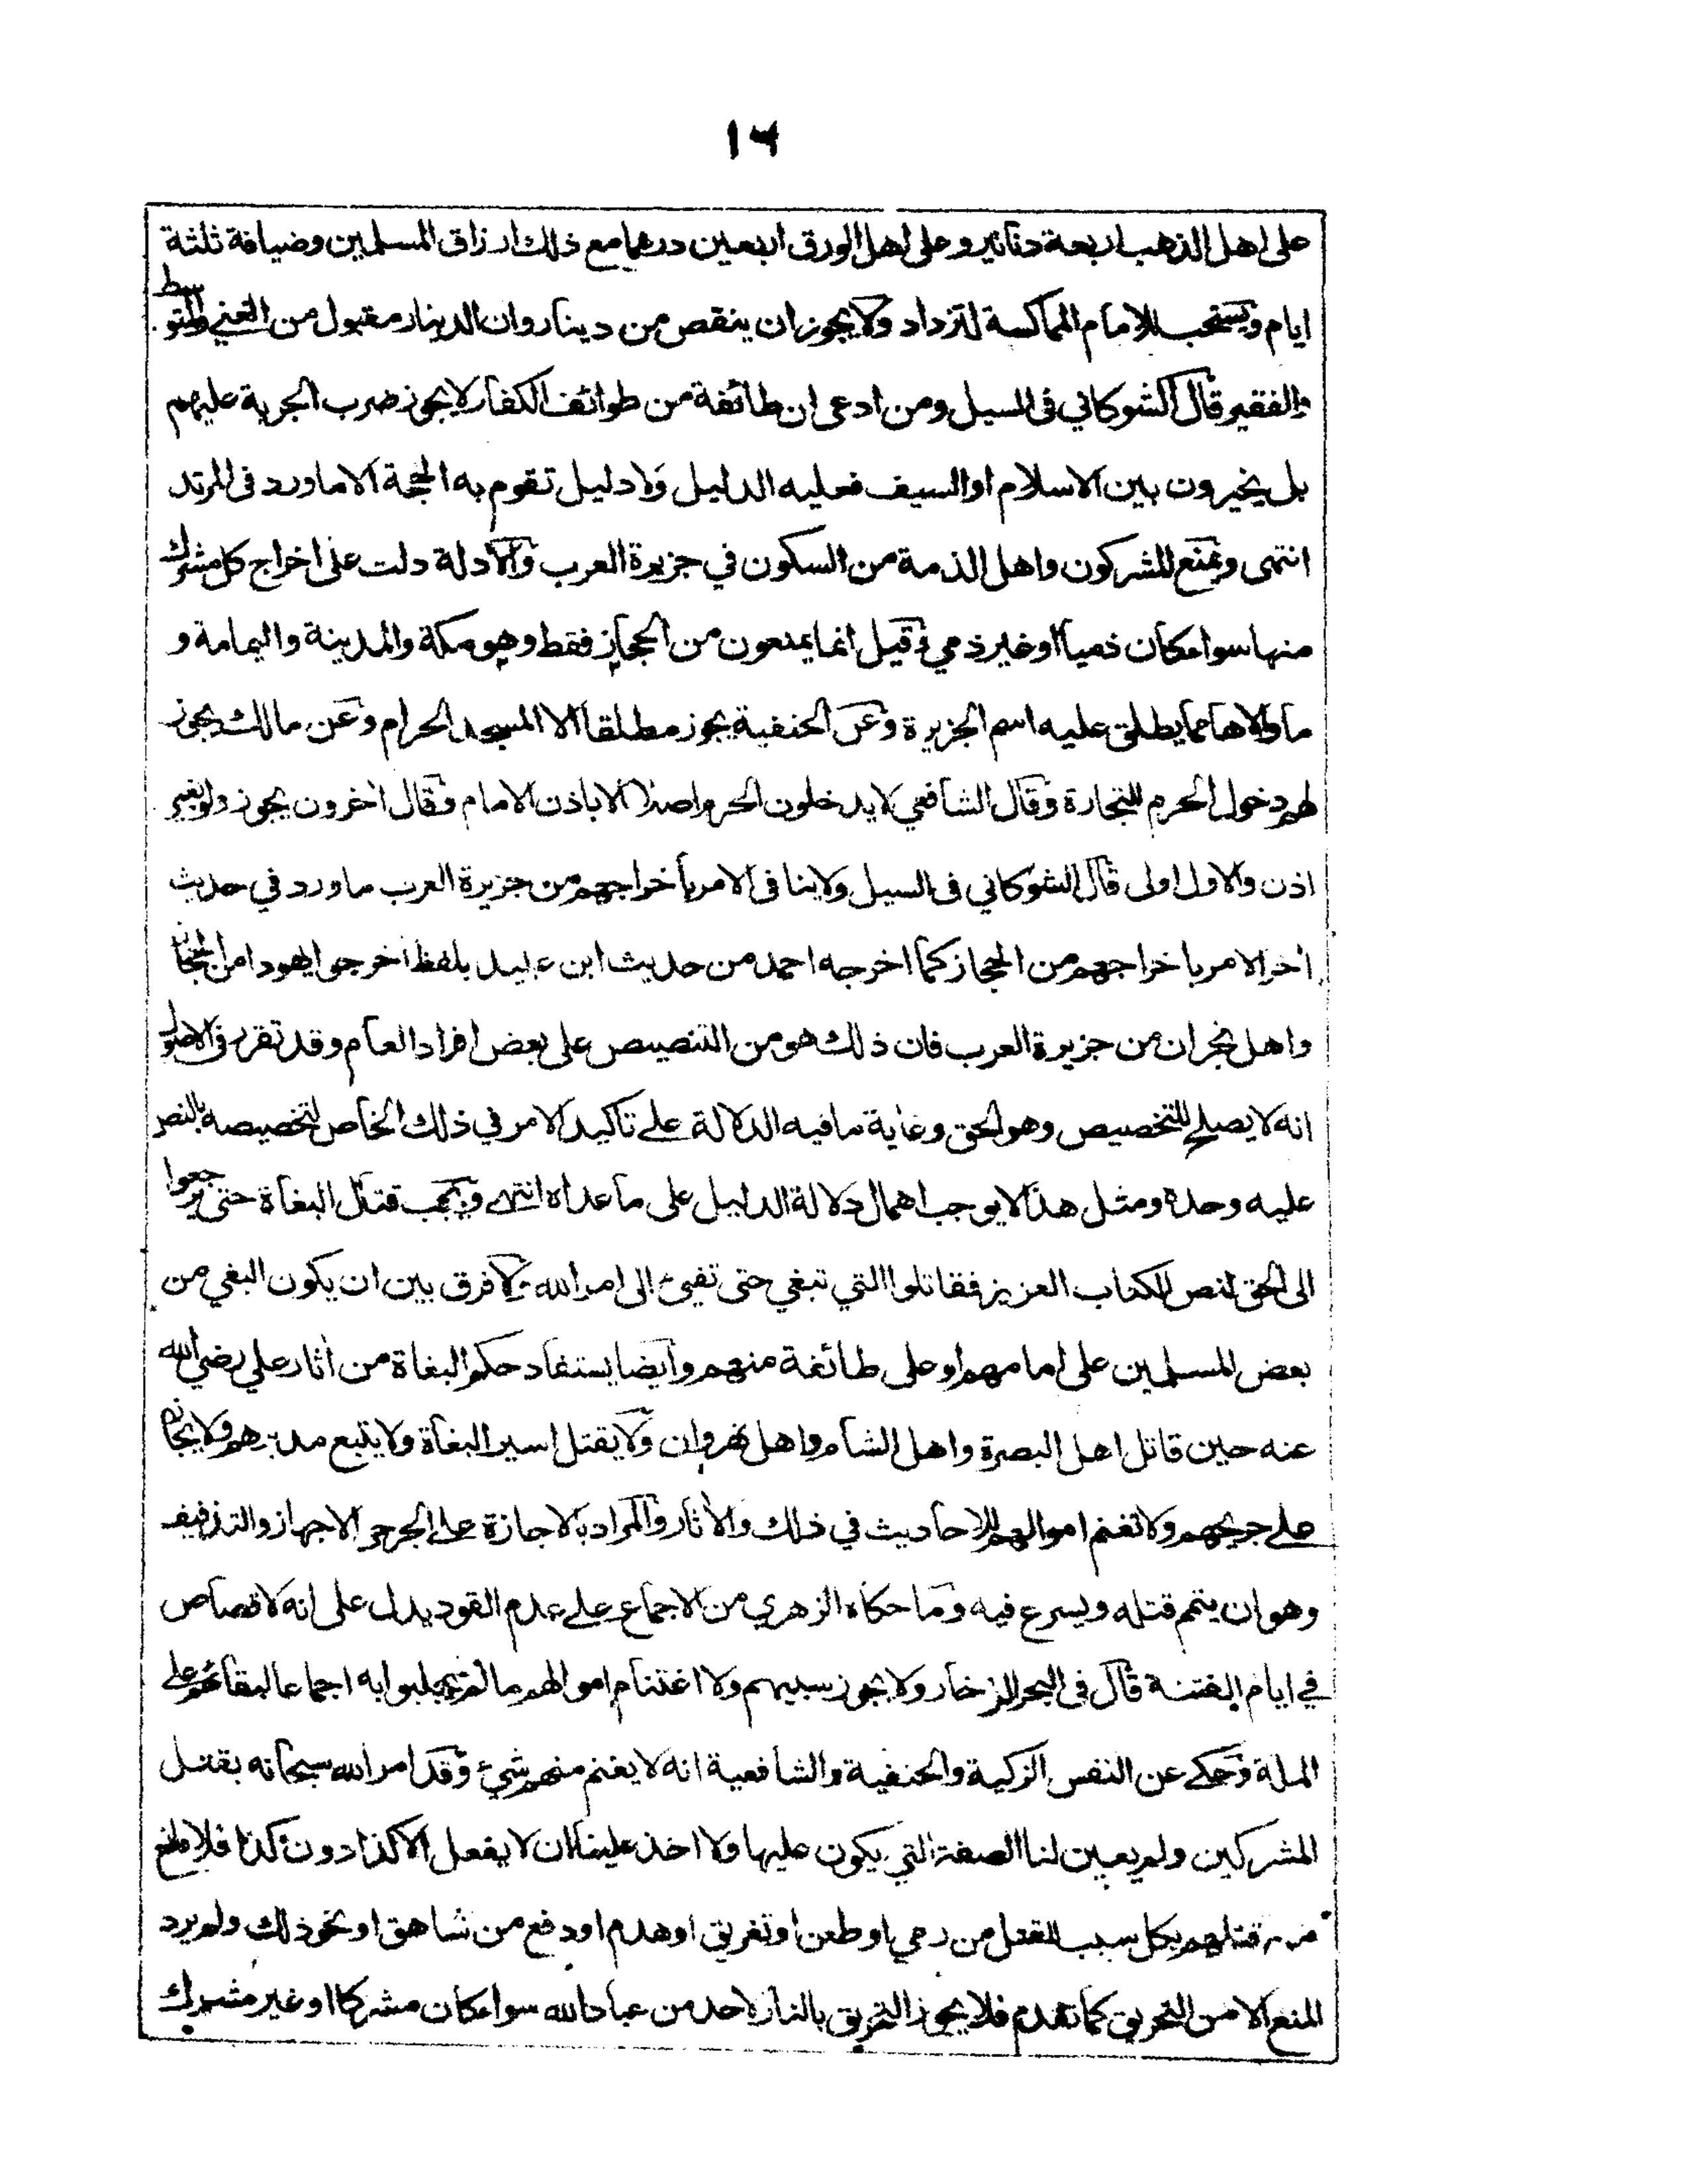 ١٣
على اهل الذهب اربعة دنانير وعلى اهل الورق اربعين درهما مع ذلك ارزاق المسلمين وضيافة ثلثة
ايام ويستحب للامام المماكسة لتزداد ولا يجوز ان ينقص من دينار وان الدينار مقبول من الغني والمتوسط
والفقير قال الشوكاني فى السيل ومن ادعى ان طائفة من طوائف الكفار لا يجوز ضرب الجزية عليهم
بل يخيرون بين الاسلام او السيف فعليه الدليل ولا دليل تقوم به الحجة الا ما ورد فى المرتد
انتهى ويمنع المشركون واهل الذمة من السكون في جزيرة العرب والادلة دلت على اخراج كل مشرك
منها سواء كان ذميا او غير ذمي وقيل انما يمنعون من الحجاز فقط وهو مكة والمدينة واليمامة و
ما والاها مما يطلق عليه اسم الجزيرة وعن الحنفية يجوز مطلقا الا المسجد الحرام وعن مالك يجوز
لهم دخول الحرم للتجارة وقال الشافعي لا يدخلون الحرم اصلا الا باذن الامام وقال اخرون يجوز ولو بغير
اذن والاول اولى قال الشوكاني فى السيل ولا ينافى الامر باخراجهم من جزيرة العرب ما ورد في حديث
اخر الامر باخراجهم من الحجاز كما اخرجه احمد من حديث ابن عبيد بلفظ اخرجوا اليهود من الحجاز
واهل نجران من جزيرة العرب فان ذلك هو من التنصيص على بعض افراد العام وقد تقرر فى الاصول
انه لا يصلح للتخصيص وهو الحق وغاية ما فيه الدلالة على تاكيد الامر في ذلك الخاص لتخصيصه بالنص
عليه وحده ومثل هذا لا يوجب اهمال دلالة الدليل على ما عداه انتهى ويجب قتال البغاة حتى يرجعوا
الى الحق لنص الكتاب العزيز فقاتلوا التي تبغي حتى تفيئ الى امر الله ولا فرق بين ان يكون البغي من
بعض المسلمين على امامهم او على طائفة منهم وايضا يستفاد حكم البغاة من اثار علي رضي الله
عنه حين قاتل اهل البصرة واهل الشام واهل نهروان ولا يقتل اسير البغاة ولا يتبع مدبرهم ولا يجاز
على جريحهم ولا تغنم اموالهم للاحاديث في ذلك والأثار والمراد بالاجازة على الجرح الاجهاز والتذفيف
وهو ان يتم قتله ويسرع فيه وما حكاه الزهري من الاجماع على عدم القود يدل على انه لا قصاص
في ايام الفتنة قال فى البحر الزخار ولا يجوز سبيهم ولا اغتنام اموالهم ما لم يجلبوا به اجماعا لبقائهم على
الملة وحكي عن النفس الزكية والحنفية والشافعية انه لا يغنم منهم شيء وقد امر الله سبحانه بقتل
المشركين ولم يعين لنا الصفة التي يكون عليها ولا اخذ علينا ان لا يفعل الا كذا دون كذا فلا مانع
من قتلهم بكل سبب للقتل من رمي او طعن او تغريق او هدم او دفع من شاهق او نحو ذلك ولم يرد
المنع الا من التحريق كما تقدم فلا يجوز التحريق بالنار لاحد من عباد الله سواء كان مشركا او غير مشرك